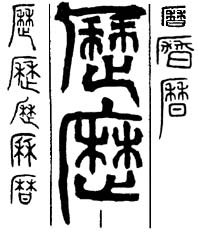 曆曆曆
歷歷
歷歷歷厤曆